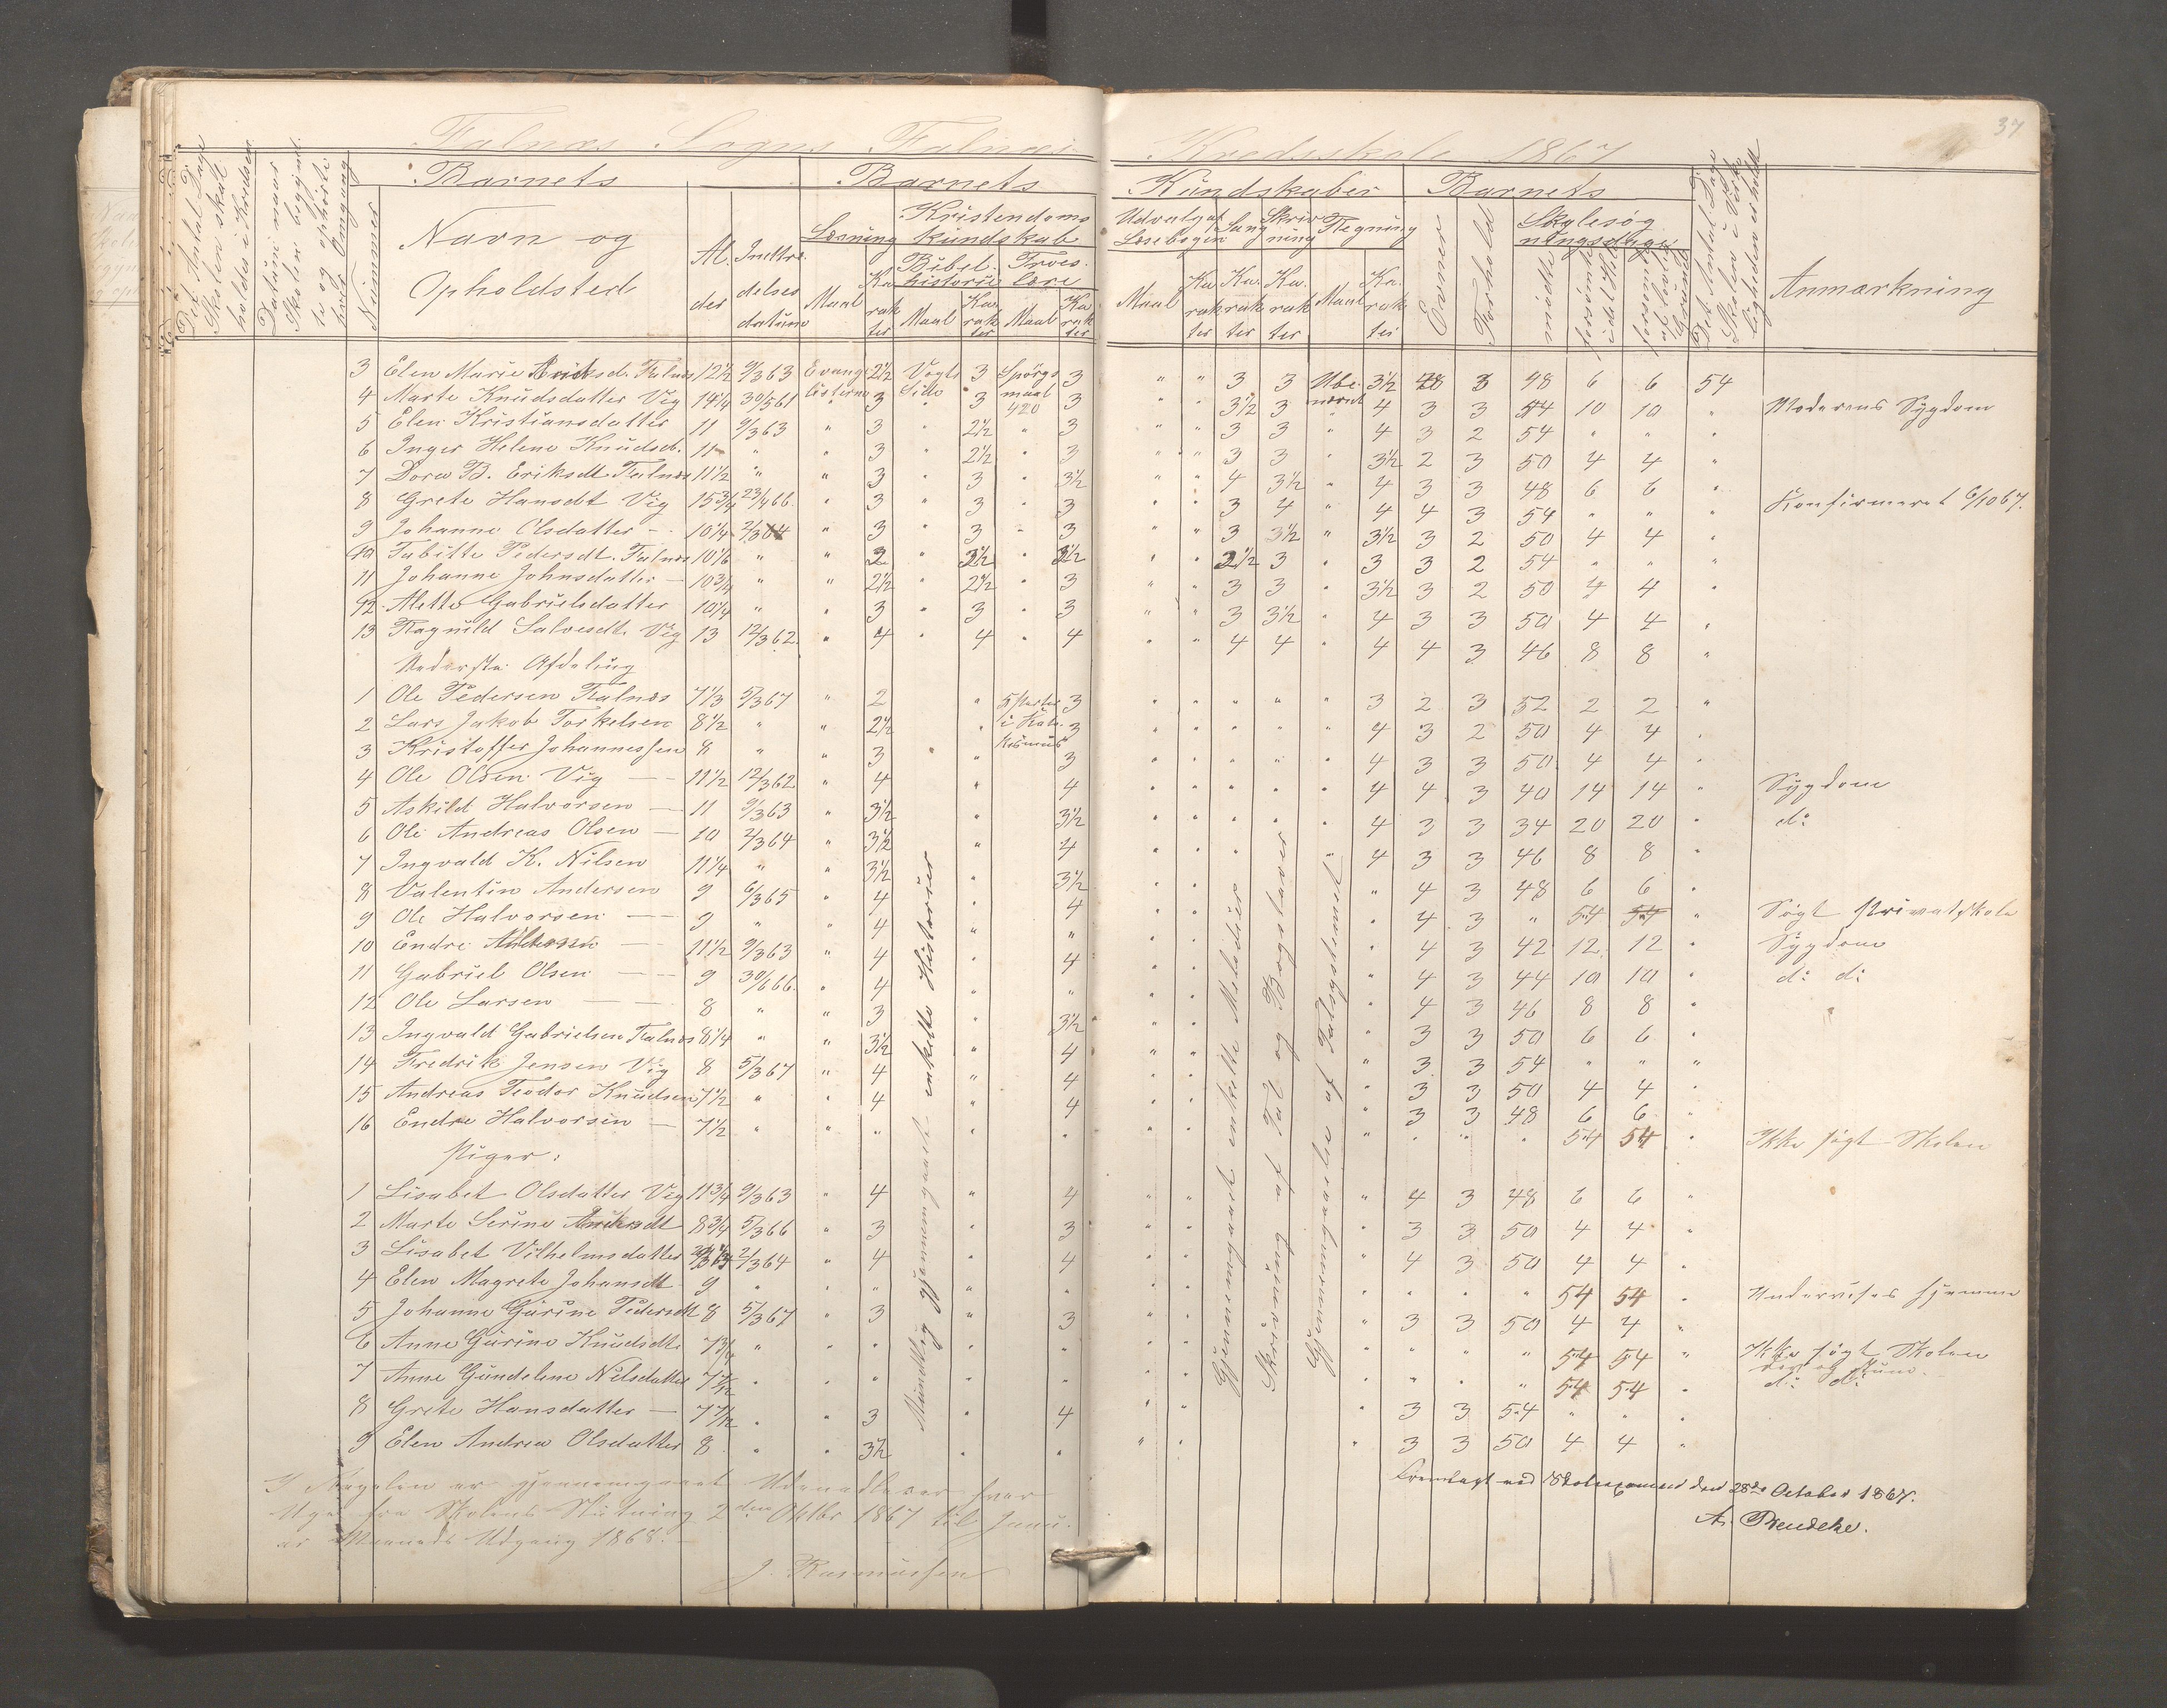 37
Falnæs Sogns Falnæs Kredsskole 1867
Det Antal Dage Skolen skal holdes i Kredsen
Datum naar Skolen begyndte og ophørte hver Omgang
Nummer
Barnets
Navn og Opholdsted
Alder
Indtrædelsesdatum
Barnets Kundskaber
Læsning
Maal
Karakter
Kristendomskundskab
Bibelhistorie
Maal
Karakter
Troeslære
Maal
Karakter
Udvalgt Læsebogen
Maal
Karakter
Sang
Karakter
Skrivning
Karakter
Regning
Maal
Karakter
Barnets
Evner
Forhold
Skolesøgningsdage
mødte
forsømte i det Hele
forsømte af lovlig Grund
Det Antal Dage Skolen i Virkeligheden er holdt
Anmærkning
3 Elen Marie Eriksd. Falnæs 12½ 9/3 63 Evang 2½ Vogts 3 Spørgs 3 " " 3 3 Ube 3½ 3 48 6 6 54
4 Marte Knudsdatter Vig 14¼ 30/5 61 listerne 3 Lille 3 maal 420 3 " " 3½ 3 nævnt 4 3 3 54 10 10 " Moderens Sygdom
5 Elen Kristiansdatter 11 9/3 63 " 3 " 2½ " 3 " " 3 3 " 4 3 2 54 " " "
6 Inger Helene Knudsd. 11 " " 3 " 2½ " 3 " " 3 3 " 3½ 2 3 50 4 4 "
7 Dora B. Eriksdt Falnæs 11½ " " 3 " 3 " 3½ " " 4 3½ " 4 3 3 48 6 6 "
8 Grete Hansdt Vig 15¾ 23/4 66 " 3 " 3 " 3 " " 3 4 " 4 4 3 54 " " " Konfirmeret 6/10 67.
9 Johanne Olsdatter - 10¼ 2/3 64 " 3 " 3 " 3 " " 3 3½ " 3½ 3 2 50 4 4 "
10 Tabitte Pedersdt. Falnæs 10⅙ " " 2 " 2½ " 2½ " " 2½ 3 " 3 3 2 54 " " "
11 Johanne Johnsdatter - 10¾ " " 2½ " 2½ " 3 " " 3 3 " 3½ 3 2 50 4 4 "
12 Aletta Gabrielsdatter 10¼ " " 3 " 3 " 3 " " 3 3½ " 4 3 3 50 4 4 "
13 Ragnild Salvesdt. Vig 13 12/3 62 " 4 " 4 " 4 " " 4 4 " 4 4 3 46 8 8 "
Nederste Afdeling
1 Ole Pedersen Falnæs 7⅓ 5/3 67 " 2 " 5 Parter 3 " " " " " 3 2 3 52 2 2 "
2 Lars Jakob Torkelsen 8½ " " 2½ " i Kate 3 " " " " " 4 3 2 50 4 4 "
3 Kristoffer Johannessen 8 " " 3 " " kismus 3 " " " " " 4 3 3 50 4 4 "
4 Ole Olsen Vig - - 11½ 12/3 62 " 4 " 4 " " " " " 4 4 3 40 14 14 " Sygdom
5 Askild Halvorsen - 11 9/3 63 " 3½ " 3½ " " " " " 4 3 3 34 20 20 " do
6 Ole Andreas Olsen - 10 2/3 64 " 3½ " 4 " " " " 4 3 3 46 8 8 "
7 Ingvald K. Nilsen 11¼ " " 3½ " 3½ " " " 4 3 48 6 6 "
8 Valentin Andersen 9 6/3 65 " 4 " 4 " " " 4 3 " 54 54 " Søgt Privatskole
9 Ole Halvorsen - 9 " " 4 " " " " " 4 3 42 12 12 " Sygdom
10 Endre - 11½ 9/3 63 " 4 " 4 " " " 4 3 44 10 10 " do do
11 Gabriel Olsen - - 9 30/6 66 " 4 " " " " " 4 3 46 8 8 "
12 Ole Larsen - - 8 " " 3 " 3½ " " " 3 3 50 6 6 "
13 Ingvald Gabrielsen Falnæs 8¼ " " 3½ " 4 " " " 3 3 54 " " "
14 Fredrik Jensen Vig 8 5/3 67 " 4 " 4 " " " 3 3 50 4 4 "
15 Andreas Teodor Knudsen 7½ " " 4 " 4 " " " 3 3 48 6 6 "
16 Endre Halvorsen - 7½ " " " " " " " " " " " 54 54 " Ikke søgt Skolen
Piger:
1 Lisabet Olsdatter Vig 11¾ 9/3 63 " 4 " 4 " " " 4 3 48 6 6 "
2 Marte Serine 8¾ 5/3 66 " 3 " 3 " " " 3 3 50 4 4 "
3 Lisabet Vilhelmsdatter 2/3 64 " 4 " 4 " " " 4 3 50 4 4 "
4 Elen Magrete Johansdt 9 " " " " " " " " " " " 54 54 " Undervises hjemme
5 Johanne Gurine Pedersdt 8 5/3 67 " 3 " 3 " " " 3 3 50 4 4 "
6 Anne Gurine Knudsdt. 7¾ " " " " " " " " " " " 54 54 " Ikke søgt Skolen
7 Anne Gundeline Nilsdatter 7 7/12 " " " " " " " " " " 54 54 " do do
8 Grete Hansdatter - 7 7/12 " " 3 " 4 " " " 3 3 54 " " "
9 Elen Andrea Olsdatter 8 " " 3½ " " " " " 3 3 50 4 4 "
Mundtlig gjennemgaaet enkelte Historier
Gjennemgaaet enkelte Melodier
Skrivning af Tal og Bogstaver
Gjennemgaaelse af Talsystemet
I Reglen er gjennemgaaet Udenadlæser hver
Uge fra Skolens Slutning 2den Oktbr 1867 til Janu-
ar Maaneds Udgang 1868. -
J. Rasmussen
Fremlagt ved Skoleexamen den 28de October 1867.
A.